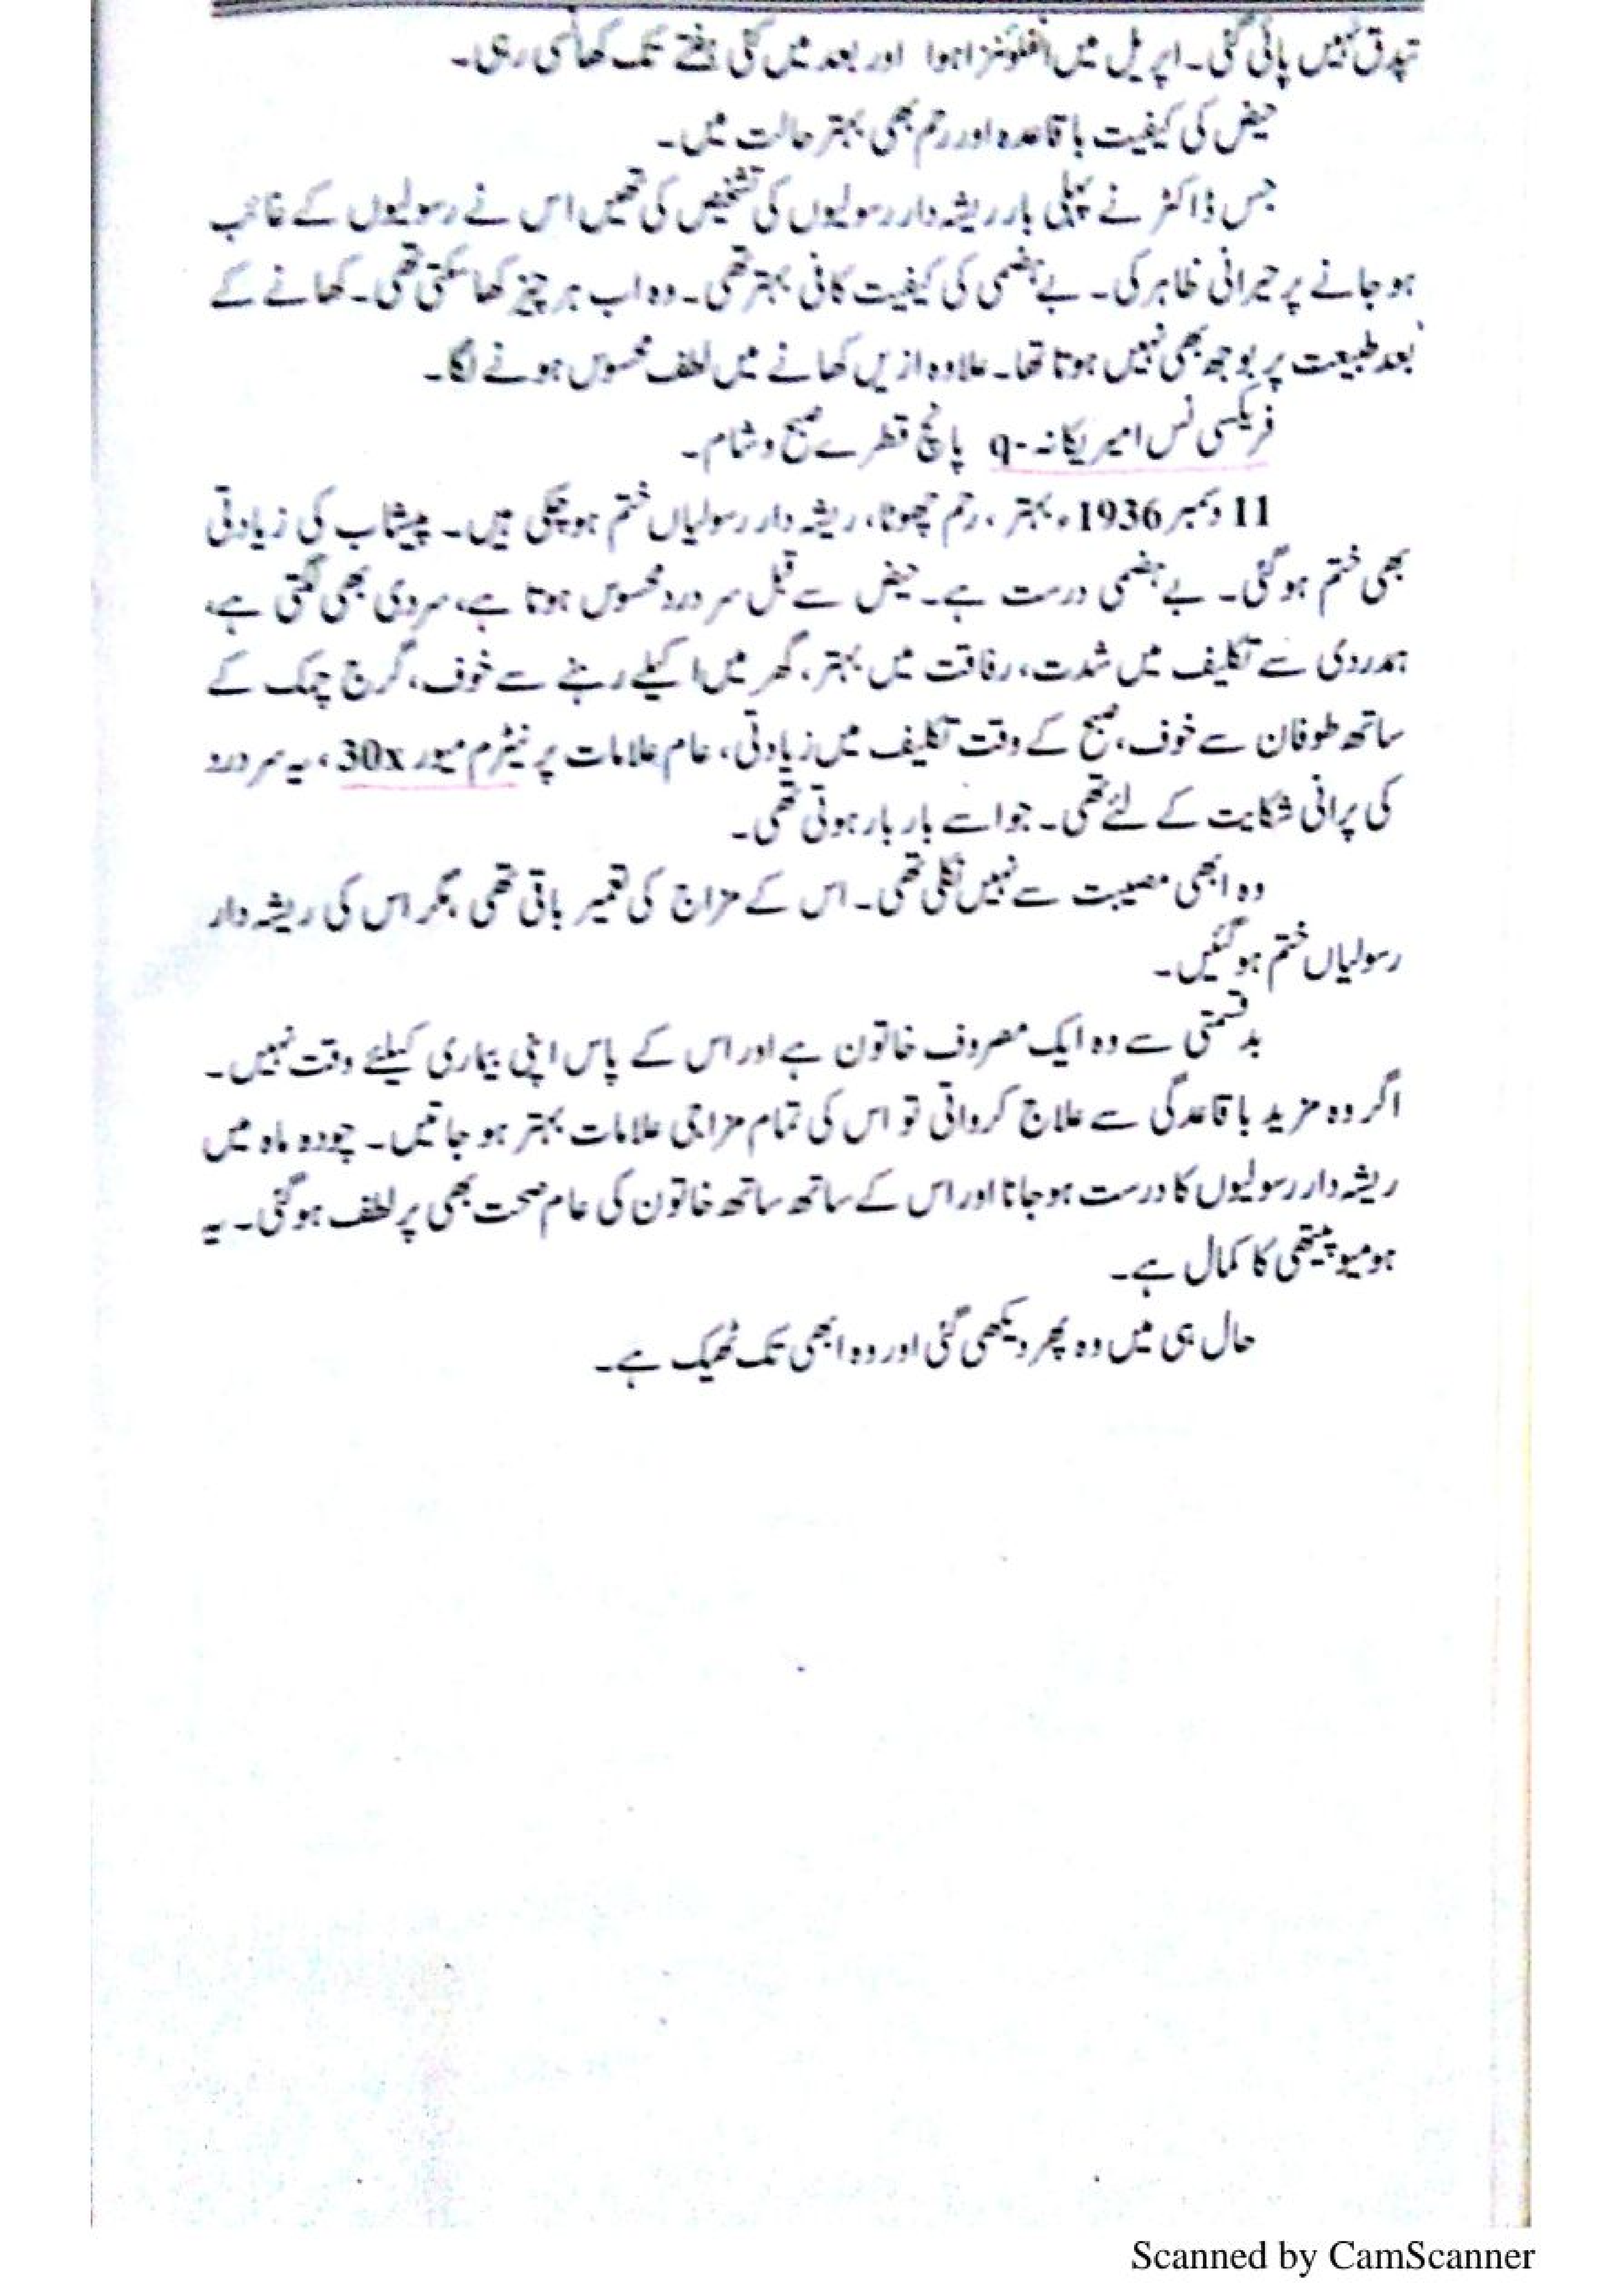 تپدق نہیں پائی گئی۔ اپریل میں انفلوئنزا ہوا اور بعد میں کئی ہفتے تک کھانسی رہی۔
حیض کی کیفیت باقاعدہ اور رحم بھی بہتر حالت میں۔
جس ڈاکٹر نے پہلی بار ریشہ دار رسولیوں کی تشخیص کی تھیں اس نے رسولیوں کے غائب
ہو جانے پر حیرانی ظاہر کی۔ بے ہضمی کی کیفیت کافی بہتر تھی۔ وہ اب ہر چیز کھا سکتی تھی۔ کھانے کے
بعد طبیعت پر بوجھ بھی نہیں ہوتا تھا۔ علاوہ ازیں کھانے میں لطف محسوس ہونے لگا۔
فریکسی نس امیریکانہ -q پانچ قطرے صبح و شام۔
11 دسمبر 1936ء بہتر، رحم چھوٹا، ریشہ دار رسولیاں ختم ہو چکی ہیں۔ پیشاب کی زیادتی
بھی ختم ہو گئی۔ بے ہضمی درست ہے۔ حیض سے قبل سر درد محسوس ہوتا ہے، سردی بھی لگتی ہے،
ہمدردی سے تکلیف میں شدت، رفاقت میں بہتر، گھر میں اکیلے رہنے سے خوف، گرج چمک کے
ساتھ طوفان سے خوف، صبح کے وقت تکلیف میں زیادتی، عام علامات پر نیٹرم میور 30x، یہ سر درد
کی پرانی شکایت کے لئے تھی۔ جو اسے بار بار ہوتی تھی۔
وہ ابھی مصیبت سے نہیں نکلی تھی۔ اس کے مزاج کی تعمیر باقی تھی مگر اس کی ریشہ دار
رسولیاں ختم ہو گئیں۔
بدقسمتی سے وہ ایک مصروف خاتون ہے اور اس کے پاس اپنی بیماری کیلئے وقت نہیں۔
اگر وہ مزید باقاعدگی سے علاج کرواتی تو اس کی تمام مزاجی علامات بہتر ہو جاتیں۔ چودہ ماہ میں
ریشہ دار رسولیوں کا درست ہو جانا اور اس کے ساتھ ساتھ خاتون کی عام صحت بھی پر لطف ہو گئی۔ یہ
ہومیوپیتھی کا کمال ہے۔
حال ہی میں وہ پھر دیکھی گئی اور وہ ابھی تک ٹھیک ہے۔
Scanned by CamScanner